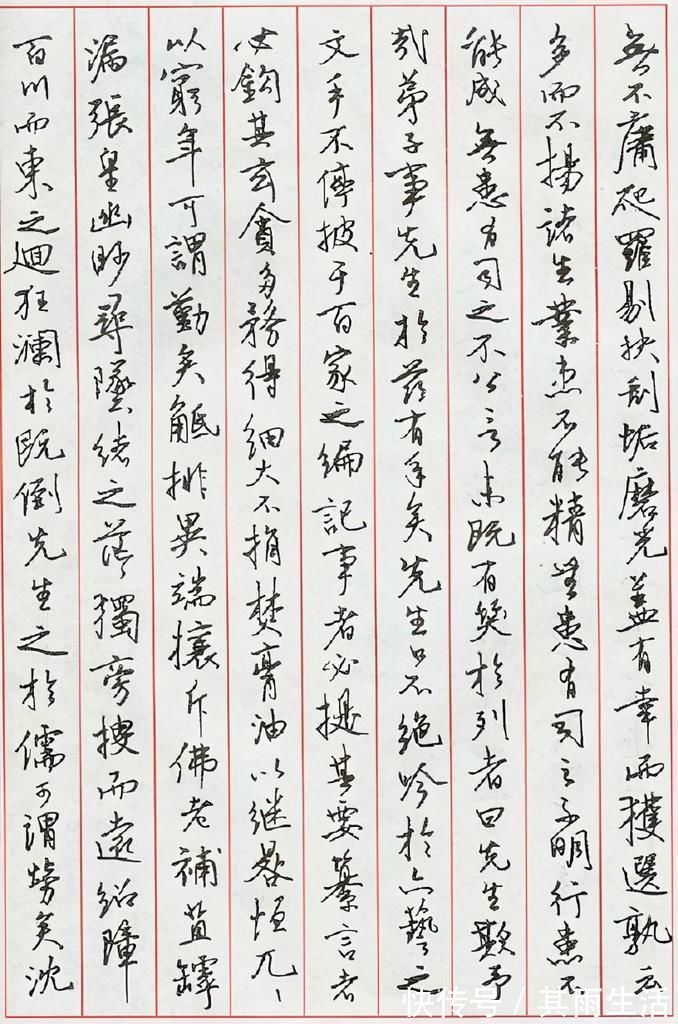 無不庸爬羅剔抉刮垢磨光蓋有幸而獲選孰云
多而不揚諸生業患不能精無患有司之不明行患不
能成無患有司之不公言未既有笑於列者曰先生欺予
哉弟子事先生於茲有年矣先生口不絕吟於六藝之
文手不停披于百家之編記事者必提其要纂言者
必鈎其玄貪多務得細大不捐焚膏油以继晷恒兀〻
以窮年可謂勤矣觝排異端攘斥佛老補苴罅
漏張皇幽眇尋墜緒之茫獨旁搜而遠紹障
百川而東之迴狂瀾於既倒先生之於儒可謂勞矣沈
快传号 / 其雨生活